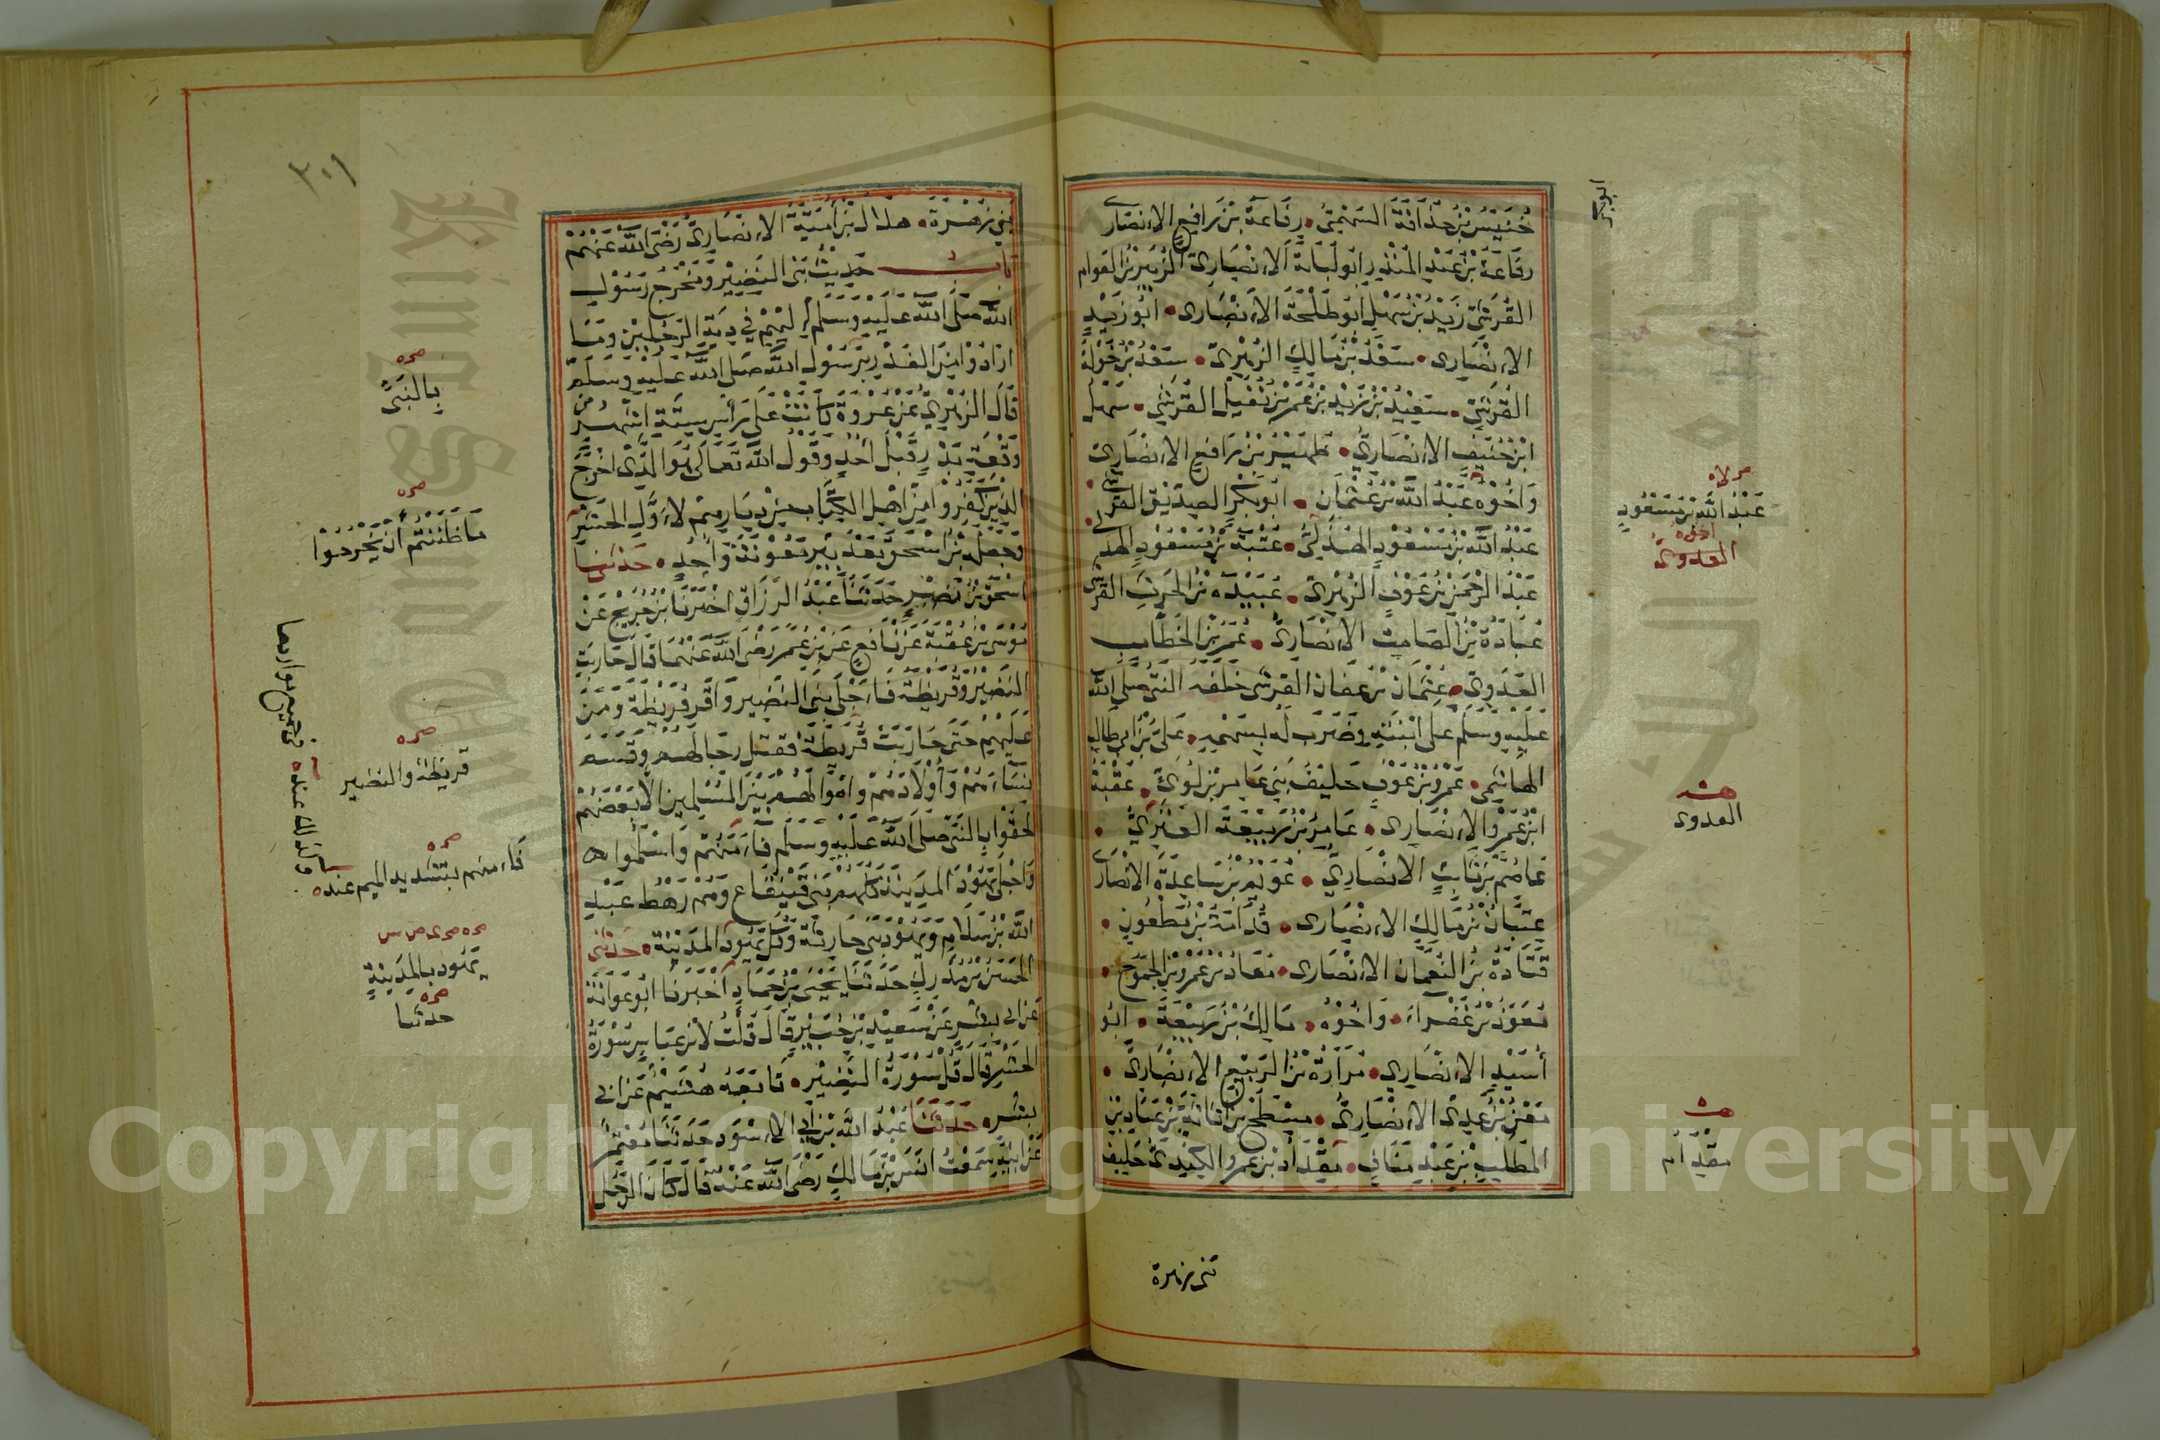 خُنَيْسُ بْنُ حُذَافَةَ السَّهْمِيُّ • رِفَاعَةُ بْنُ رَافِعٍ الْأَنْصَارِيُّ
رِفَاعَةُ بْنُ عَبْدِ الْمُنْذِرِ أَبُو لُبَابَةَ الْأَنْصَارِيُّ الزُّبَيْرُ بْنُ الْعَوَّامِ
الْقُرَشِيُّ زَيْدُ بْنُ سَهْلٍ أَبُو طَلْحَةَ الْأَنْصَارِيُّ • أَبُو زَيْدٍ
الْأَنْصَارِيُّ • سَعْدُ بْنُ مَالِكٍ الزُّهْرِيُّ • سَعْدُ بْنُ خَوْلَةَ
الْقُرَشِيُّ • سَعِيدُ بْنُ زَيْدِ بْنِ عَمْرِو بْنِ نُفَيْلٍ الْقُرَشِيُّ • سَهْلُ
ابْنُ حُنَيْفٍ الْأَنْصَارِيُّ • ظُهَيْرُ بْنُ رَافِعٍ الْأَنْصَارِيُّ
وَأَخُوهُ عَبْدُ اللَّهِ بْنُ عُثْمَانَ • أَبُو بَكْرٍ الصِّدِّيقُ الْقُرَشِيُّ •
عَبْدُ اللَّهِ بْنُ مَسْعُودٍ الْهُذَلِيُّ • عُتْبَةُ بْنُ مَسْعُودٍ الْهُذَلِيُّ
عَبْدُ الرَّحْمَنِ بْنُ عَوْفٍ الزُّهْرِيُّ • عُبَيْدَةُ بْنُ الْحَرِثِ الْقُرَشِيُّ
عُبَادَةُ بْنُ الصَّامِتِ الْأَنْصَارِيُّ • عُمَرُ بْنُ الْخَطَّابِ
الْعَدَوِيُّ • عُثْمَانُ بْنُ عَفَّانَ الْقُرَشِيُّ خَلَّفَهُ النَّبِيُّ صَلَّى اللَّهُ
عَلَيْهِ وَسَلَّمَ عَلَى ابْنَتِهِ وَضَرَبَ لَهُ بِسَهْمِهِ • عَلِيُّ بْنُ أَبِي طَالِبٍ
الْهَاشِمِيُّ • عَمْرُو بْنُ عَوْفٍ حَلِيفُ بَنِي عَامِرِ بْنِ لُؤَيٍّ • عُقْبَةُ
ابْنُ عَمْرٍو الْأَنْصَارِيُّ • عَامِرُ بْنُ رَبِيعَةَ الْعَنَزِيُّ •
عَاصِمُ بْنُ ثَابِتٍ الْأَنْصَارِيُّ • عُوَيْمُ بْنُ سَاعِدَةَ الْأَنْصَارِيُّ
عِتْبَانُ بْنُ مَالِكٍ الْأَنْصَارِيُّ • قُدَامَةُ بْنُ مَظْعُونٍ •
قَتَادَةُ بْنُ النُّعْمَانِ الْأَنْصَارِيُّ • مُعَاذُ بْنُ عَمْرِو بْنِ الْجَمُوحِ •
مُعَوِّذُ بْنُ عَفْرَاءَ • وَأَخُوهُ • مَالِكُ بْنُ رَبِيعَةَ • أَبُو
أُسَيْدٍ الْأَنْصَارِيُّ • مُرَارَةُ بْنُ الرَّبِيعِ الْأَنْصَارِيُّ •
مَعْنُ بْنُ عَدِيٍّ الْأَنْصَارِيُّ • مِسْطَحُ بْنُ أُثَاثَةَ بْنِ عَبَّادِ بْنِ
الْمُطَّلِبِ بْنِ عَبْدِ مَنَافٍ • مِقْدَادُ بْنُ عَمْرٍو الْكِنْدِيُّ حَلِيفُ
عَبْدُ اللَّهِ بْنُ مَسْعُودٍ
أخوه
العدوي
العدوى
مقدام
بنى زهرة
٣٠١
بَنِي زُهْرَةَ • هِلَالُ بْنُ أُمَيَّةَ الْأَنْصَارِيُّ رَضِيَ اللَّهُ عَنْهُمْ
بَابُ حَدِيثِ بَنِي النَّضِيرِ وَمَخْرَجِ رَسُولِ
اللَّهِ صَلَّى اللَّهُ عَلَيْهِ وَسَلَّمَ إِلَيْهِمْ فِي دِيَةِ الرَّجُلَيْنِ وَمَا
أَرَادُوا مِنَ الْغَدْرِ بِرَسُولِ اللَّهِ صَلَّى اللَّهُ عَلَيْهِ وَسَلَّمَ
قَالَ الزُّهْرِيُّ عَنْ عُرْوَةَ كَانَتْ عَلَى رَأْسِ سِتَّةِ أَشْهُرٍ مِنْ
وَقْعَةِ بَدْرٍ قَبْلَ أُحُدٍ وَقَوْلُ اللَّهِ تَعَالَى هُوَ الَّذِي أَخْرَجَ
الَّذِينَ كَفَرُوا مِنْ أَهْلِ الْكِتَابِ مِنْ دِيَارِهِمْ لِأَوَّلِ الْحَشْرِ
وَجَعَلَهُ ابْنُ إِسْحَقَ بَعْدَ بِئْرِ مَعُونَةَ وَأُحُدٍ • حَدَّثَنَا
إِسْحَقُ بْنُ نَصْرٍ حَدَّثَنَا عَبْدُ الرَّزَّاقِ أَخْبَرَنَا ابْنُ جُرَيْجٍ عَنْ
مُوسَى بْنِ عُقْبَةَ عَنْ نَافِعٍ عَنِ ابْنِ عُمَرَ رَضِيَ اللَّهُ عَنْهُمَا قَالَ حَارَبَتِ
النَّضِيرُ وَقُرَيْظَةُ فَأَجْلَى بَنِي النَّضِيرِ وَأَقَرَّ قُرَيْظَةَ وَمَنَّ
عَلَيْهِمْ حَتَّى حَارَبَتْ قُرَيْظَةُ فَقَتَلَ رِجَالَهُمْ وَقَسَمَ
نِسَاءَهُمْ وَأَوْلَادَهُمْ وَأَمْوَالَهُمْ بَيْنَ الْمُسْلِمِينَ إِلَّا بَعْضَهُمْ
لَحِقُوا بِالنَّبِيِّ صَلَّى اللَّهُ عَلَيْهِ وَسَلَّمَ فَآمَنَهُمْ وَأَسْلَمُوا
وَأَجْلَى يَهُودَ الْمَدِينَةِ كُلَّهُمْ بَنِي قَيْنُقَاعٍ وَهُمْ رَهْطُ عَبْدِ
اللَّهِ بْنِ سَلَامٍ وَيَهُودَ بَنِي حَارِثَةَ وَكُلَّ يَهُودِ الْمَدِينَةِ • حَدَّثَنِي
الْحَسَنُ بْنُ مُدْرِكٍ حَدَّثَنَا يَحْيَى بْنُ حَمَّادٍ أَخْبَرَنَا أَبُو عَوَانَةَ
عَنْ أَبِي بِشْرٍ عَنْ سَعِيدِ بْنِ جُبَيْرٍ قَالَ قُلْتُ لِابْنِ عَبَّاسٍ سُورَةُ
الْحَشْرِ قَالَ قُلْ سُورَةُ النَّضِيرِ • تَابَعَهُ هُشَيْمٌ عَنْ أَبِي
بِشْرٍ • حَدَّثَنَا عَبْدُ اللَّهِ بْنُ أَبِي الْأَسْوَدِ حَدَّثَنَا مُعْتَمِرٌ
عَنْ أَبِيهِ سَمِعْتُ أَنَسَ بْنَ مَالِكٍ رَضِيَ اللَّهُ عَنْهُ قَالَ كَانَ الرَّجُلُ
بِالنَّبِيِّ
مَا ظَنَنْتُمْ أَنْ يَخْرُجُوا
قريظة والنضير
فَأَمَّنهم بتشديد الميم عنده
يَهُودٍ بِالْمَدِينَةِ
حدثنا